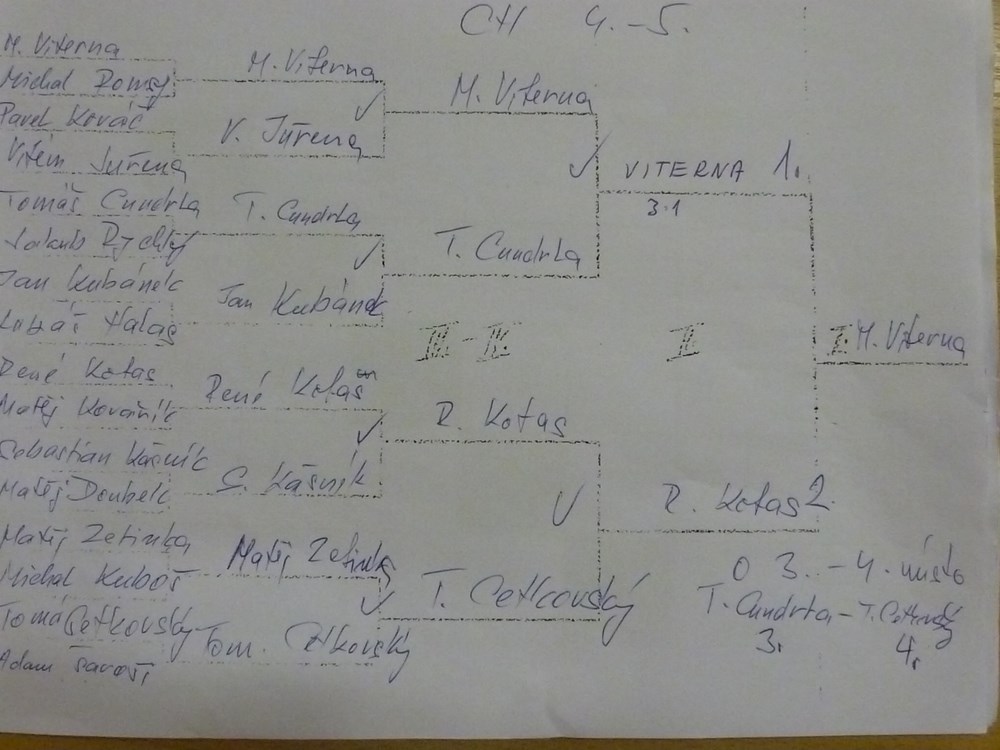 CH 4.-5.
M. Viterna
Michal
Pavel Kováč
Vilém Juřena
Tomáš Cundrla
Jakub Rychlý
Jan Kubánek
Lukáš Halas
René Kotas
Matěj
Sebastián Kášník
Matěj Doubek
Matěj Zetinka
Michal Kuboš
Tomáš Cetkovský
Adam
M. Viterna
V. Juřena
T. Cundrla
Jan Kubánek
René Kotas
S. Kášník
Matěj Zetinka
Tom. Cetkovský
M. Viterna
T. Cundrla
III - IV.
R. Kotas
T. Cetkovský
VITERNA 1.
3.1
II
R. Kotas 2.
I. M. Viterna
O 3. - 4. místo
T. Cundrla - T. Cetkovský
3. 4.